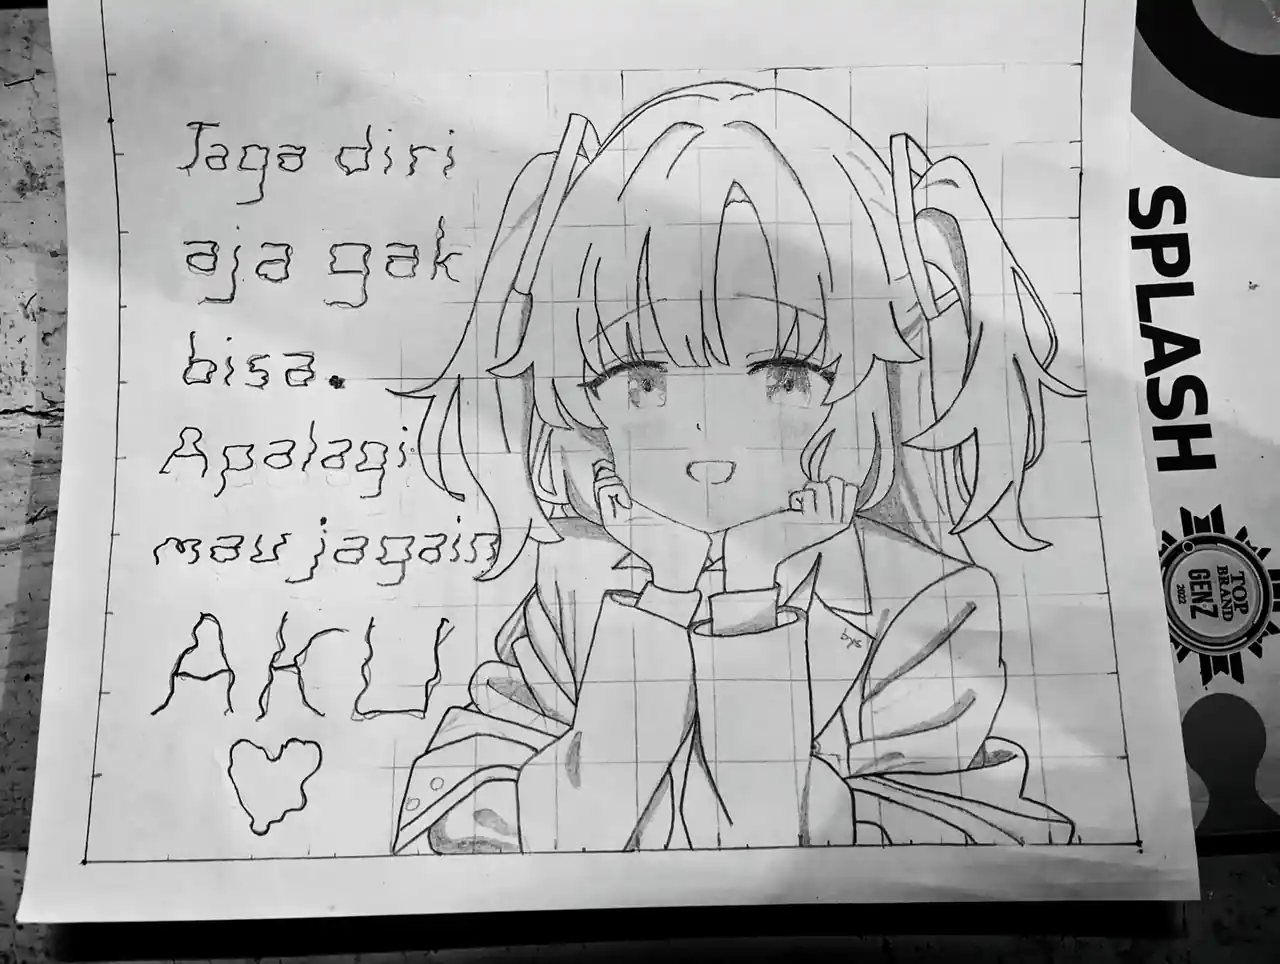 Jaga diri
aja gak
bisa.
Apalagi
mau jagain
AKU
SPLASH
TOP
BRAND
GEN Z
2022